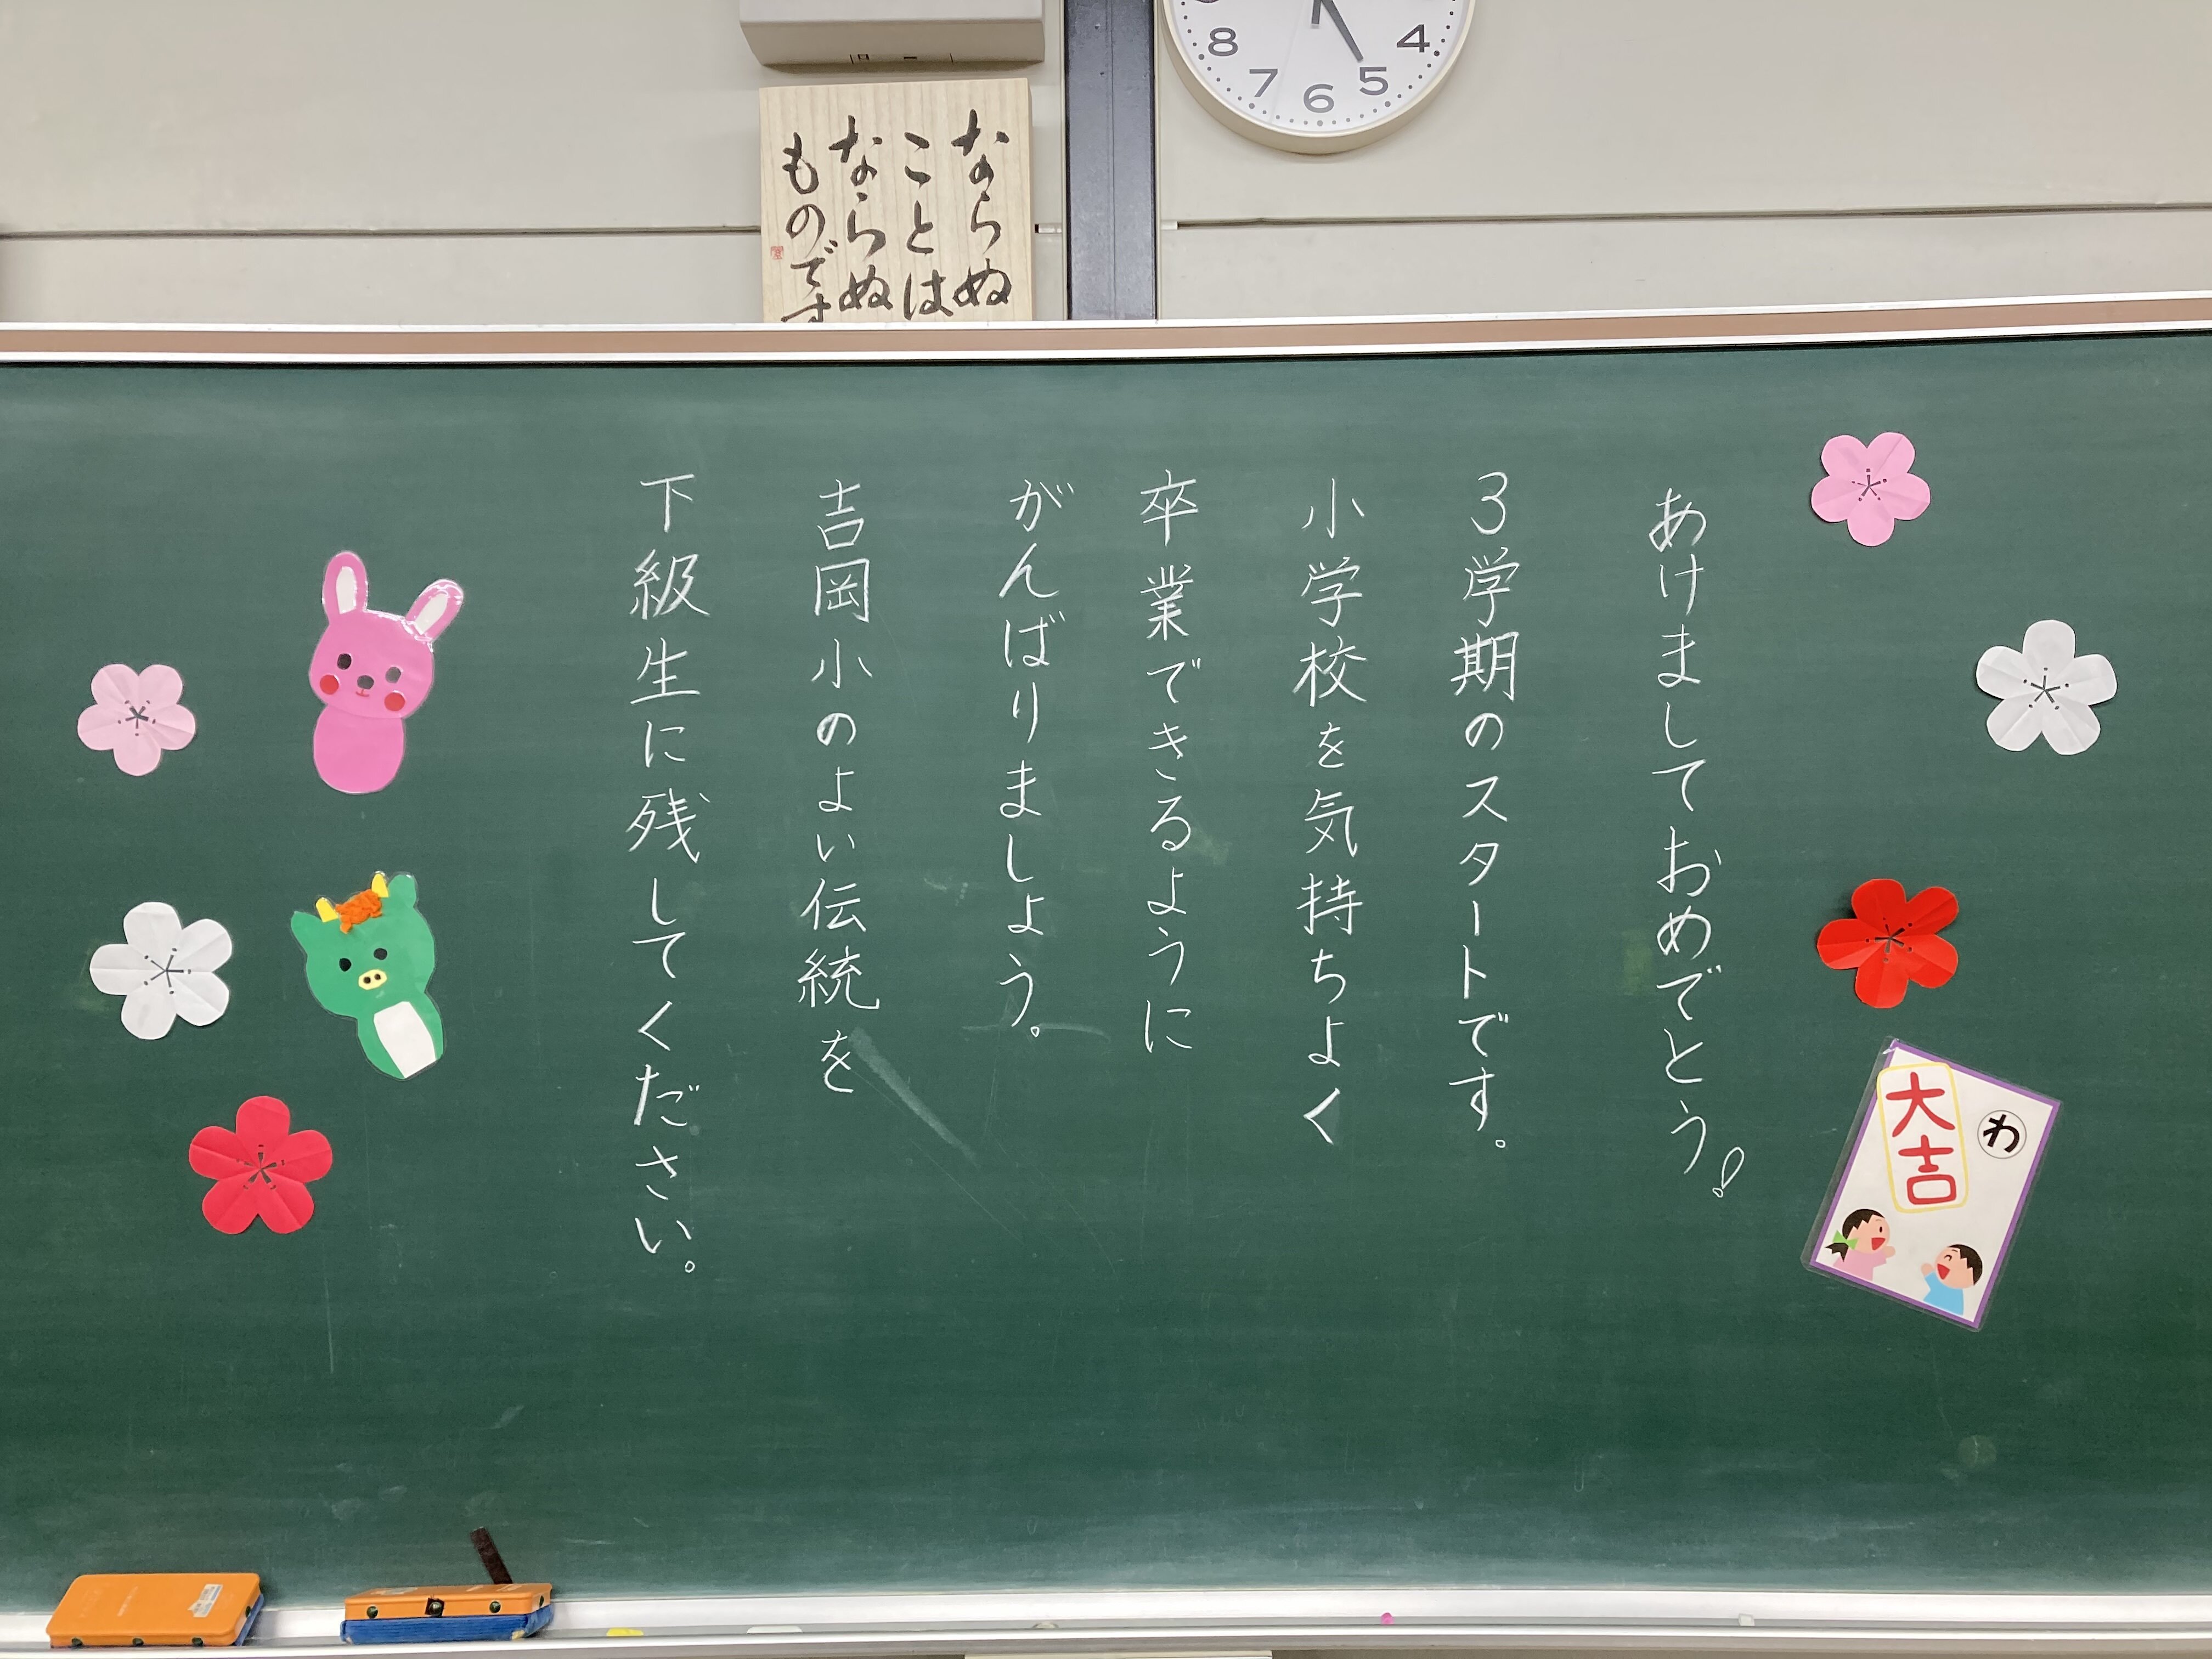 ならぬ
ことは
ならぬ
ものです
8
7
6
5
4
あけましておめでとう!
3学期のスタートです。
小学校を気持ちよく
卒業できるように
がんばりましょう。
吉岡小のよい伝統を
下級生に残してください。
わ
大吉